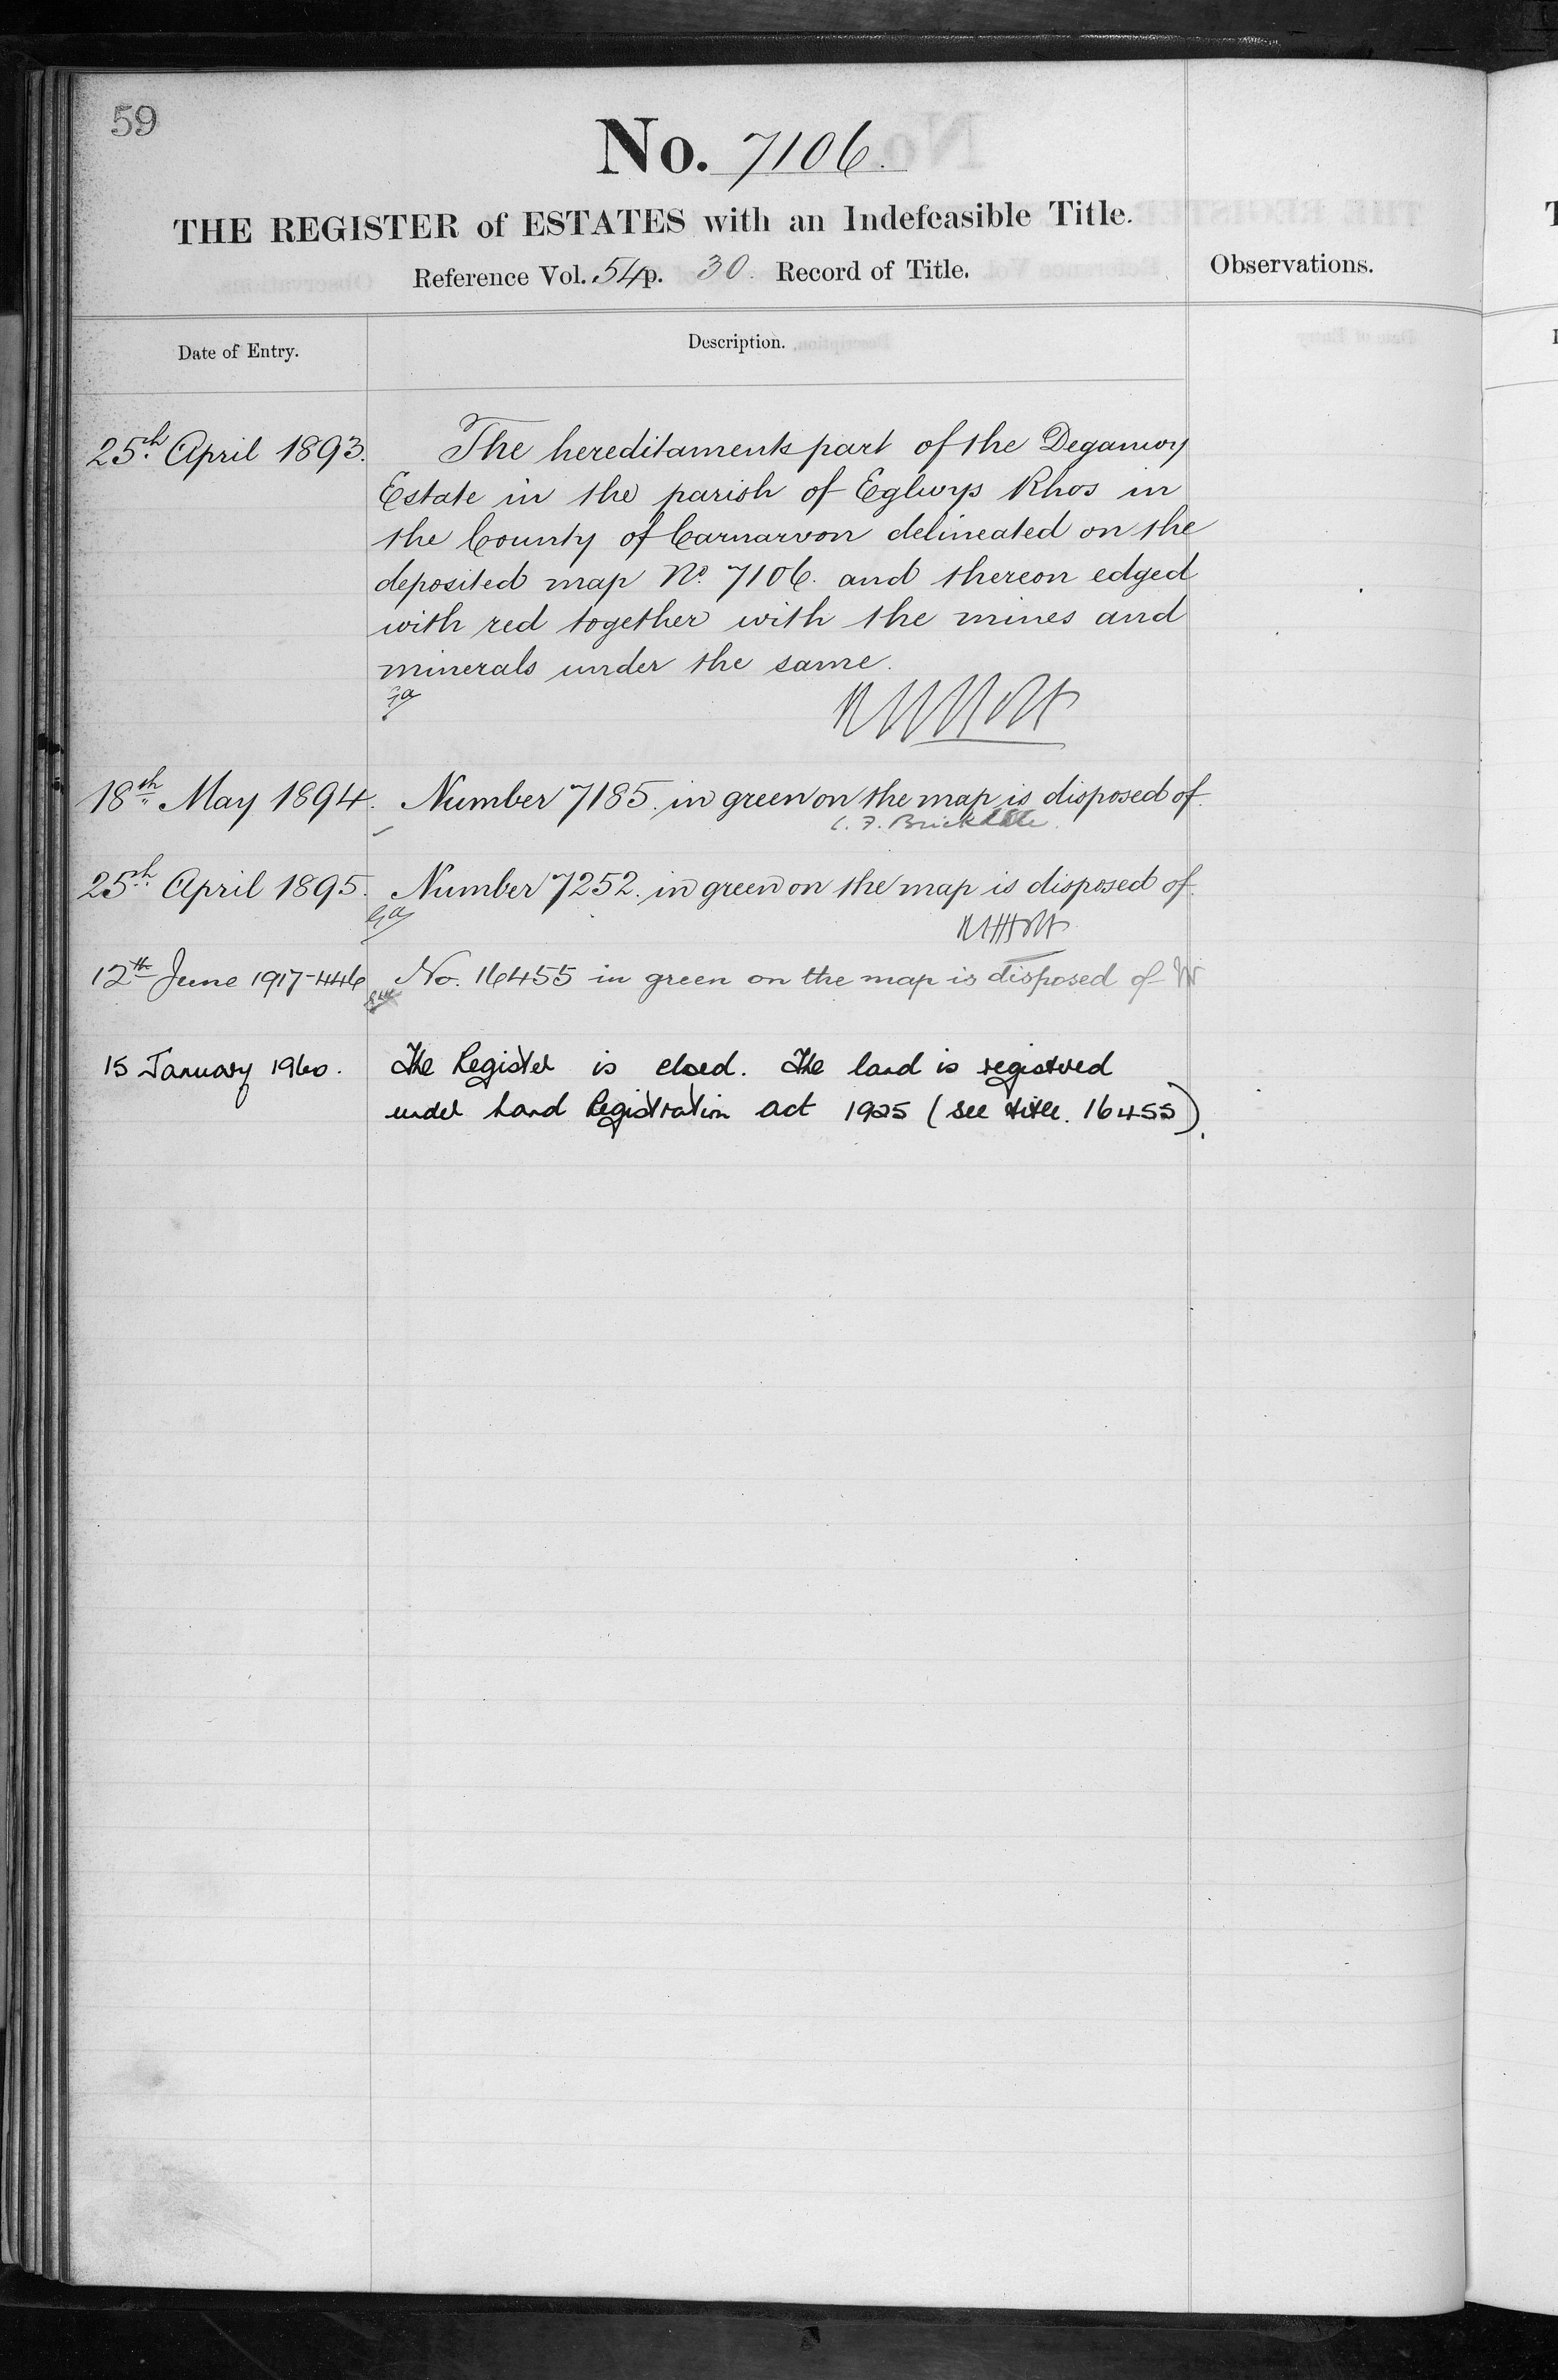 59
No. 7106.
THE REGISTER of ESTATES with an Indefeasible Title.
Reference Vol. 54 p. 30. Record of Title.
Observations.
Date of Entry.
Description.
25th April 1893. The hereditaments part of the Deganwy
Estate in the parish of Eglwys Rhos in
the County of Carnarvon delineated on the
deposited map No. 7106. and thereon edged
with red together with the mines and
minerals under the same.
18th May 1894. Number 7185. in green on the map is disposed of.
C. F. Brickdale
25th April 1895. Number 7252. in green on the map is disposed of.
12th June 1917-446 No. 16455 in green on the map is disposed of
15 January 1960. The Register is closed. The land is registered
under Land Registration Act 1925 (see title. 16455).